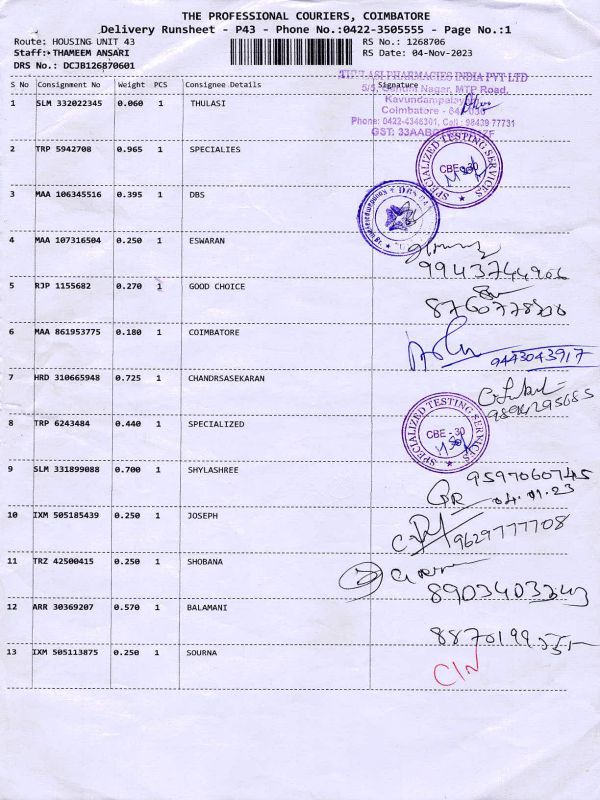 THE PROFESSIONAL COURIERS, COIMBATORE
Delivery Runsheet - P43 - Phone No.:0422-3505555 - Page No.:1
Route: HOUSING UNIT 43 RS No.: 1268706
Staff: THAMEEM ANSARI RS Date: 04-Nov-2023
DRS No.: DCJB126870601
S No Consignment No Weight PCS Consignee Details Signature
THULASI PHARMACIES INDIA PVT LTD
Nagar, MTP Road,
Kavundampalay
Coimbatore -
Phone: 0422-4346301, Cell: 98439 77731
GST: 33AAB
1 SLM 332022345 0.060 1 THULASI
2 TRP 5942708 0.965 1 SPECIALIES
SPECIALIZED TESTING SERVICES
CBE - 30
3 MAA 106345516 0.395 1 DBS
DBS
4 MAA 107316504 0.250 1 ESWARAN
9943744906
5 RJP 1155682 0.270 1 GOOD CHOICE
6 MAA 861953775 0.180 1 COIMBATORE
9443043917
7 HRD 310665948 0.725 1 CHANDRSASEKARAN
8 TRP 6243484 0.440 1 SPECIALIZED
SPECIALIZED TESTING SERVICES
CBE - 30
9 SLM 331899088 0.700 1 SHYLASHREE
9597060745
04.11.23
10 IXM 505185439 0.250 1 JOSEPH
9629777708
11 TRZ 42500415 0.250 1 SHOBANA
8903403243
12 ARR 30369207 0.570 1 BALAMANI
13 IXM 505113875 0.250 1 SOURNA